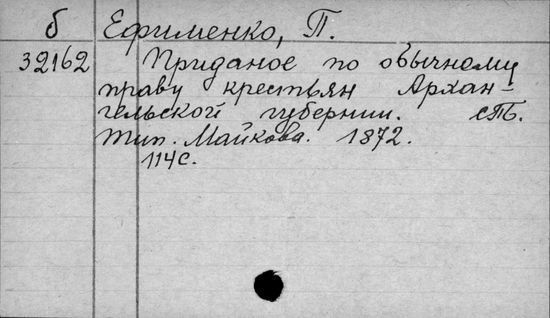 б Ефименко, П.
32162 Приданое по обычному
праву крестьян Архан-
гельской губернии. СПБ.
Тип. Майкова. 1872.
114 с.